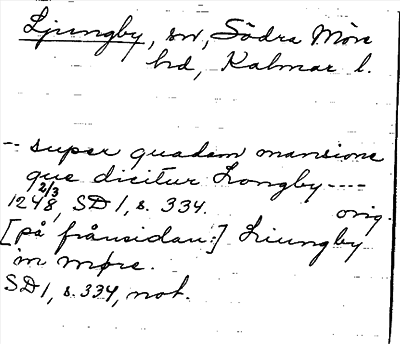 Ljungby, sn, Södra Möre
hd, Kalmar l.
-- super quadam mansione
que dicitur Longby ----
1248 2/3, SD 1, s. 334. orig.
[på frånsidan:] Liungby
in møre.
SD 1, s. 334, not.